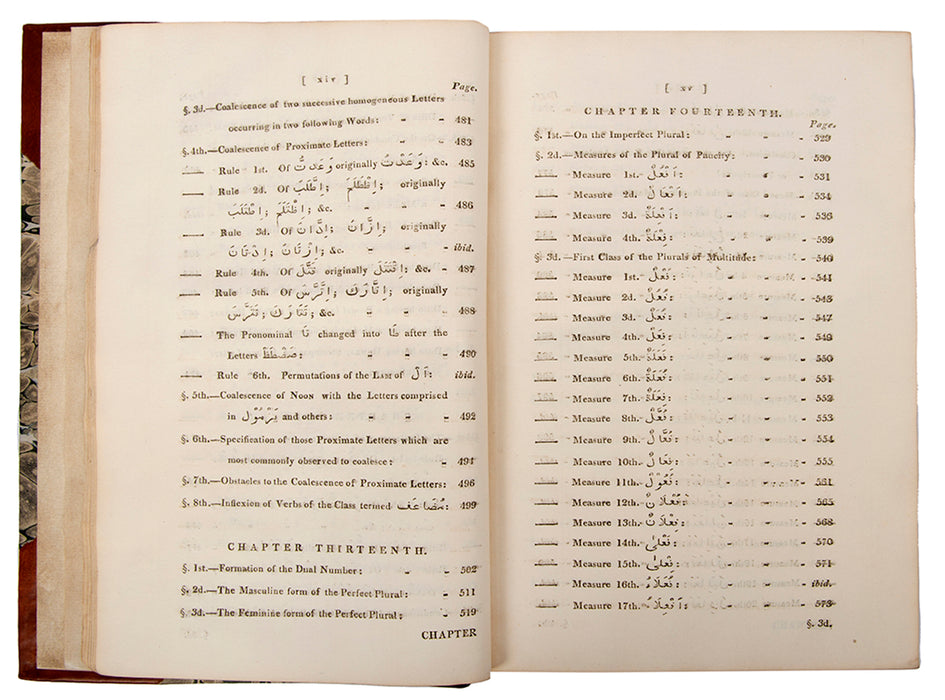 [ xiv ]
Page.
§. 3d.—Coalescence of two successive homogeneous Letters
occurring in two following Words: - - 481
§. 4th.—Coalescence of Proximate Letters: - - 483
—— Rule 1st. Of وَعَدتُّ originally وَعَدْتُ: &c. 485
—— Rule 2d. Of اِطَّلَبَ; اِظَّلَمَ, originally
اِطْتَلَبَ; اِظْتَلَمَ; &c. - - 486
—— Rule 3d. Of اِدَّانَ; اِزَّانَ; originally
اِدْتَانَ; اِزْتَانَ; &c. - - ibid.
—— Rule 4th. Of قَتَّلَ originally اِقْتَتَلَ: &c. - 487
—— Rule 5th. Of اِتَّرَّسَ; اِتَّارَكَ; originally
تَتَرَّسَ; تَتَارَكَ; &c. - - 488
—— The Pronominal تَا changed into طَا after the
Letters صَضْطَظْ: - - - 490
—— Rule 6th. Permutations of the Lam of اَلْ: ibid.
§. 5th.—Coalescence of Noon with the Letters comprised
in يَرْمُلُوْنَ and others: - - - 492
§. 6th.—Specification of those Proximate Letters which are
most commonly observed to coalesce: - - 494
§. 7th.—Obstacles to the Coalescence of Proximate Letters: 496
§. 8th.—Inflexion of Verbs of the Class termed مُضَاعَفْ: 499
CHAPTER THIRTEENTH.
§. 1st.—Formation of the Dual Number: - - 502
§. 2d.—The Masculine form of the Perfect Plural: - 511
§. 3d.—The Feminine form of the Perfect Plural: - 519
CHAPTER
[ xv ]
CHAPTER FOURTEENTH.
Page.
§. 1st.—On the Imperfect Plural: - - - 529
§. 2d.—Measures of the Plural of Paucity: - - 530
—— Measure 1st. اَفْعُلٌ: - - - 531
—— Measure 2d. اَفْعَالٌ: - - - 534
—— Measure 3d. اَفْعِلَةٌ: - - - 536
—— Measure 4th. فِعْلَةٌ: - - - 539
§. 3d.—First Class of the Plurals of Multitude: - 540
—— Measure 1st. فُعْلٌ: - - - 541
—— Measure 2d. فُعُلٌ: - - - 545
—— Measure 3d. فُعَلٌ: - - - 547
—— Measure 4th. فِعَلٌ: - - - 549
—— Measure 5th. فَعَلَةٌ: - - - 550
—— Measure 6th. فُعَلَةٌ: - - - 551
—— Measure 7th. فِعَلَةٌ: - - - 552
—— Measure 8th. فُعَّلٌ: - - - 553
—— Measure 9th. فُعَّالٌ: - - - 554
—— Measure 10th. فِعَالٌ: - - - 555
—— Measure 11th. فُعُوْلٌ: - - - 561
—— Measure 12th. فُعْلَانٌ: - - - 565
—— Measure 13th. فِعْلَانٌ: - - - 568
—— Measure 14th. فَعْلٰى: - - - 570
—— Measure 15th. فِعْلٰى: - - - 571
—— Measure 16th. فُعَلَاءُ: - - - ibid.
—— Measure 17th. اَفْعِلَاءُ: - - - 573
§. 3d.